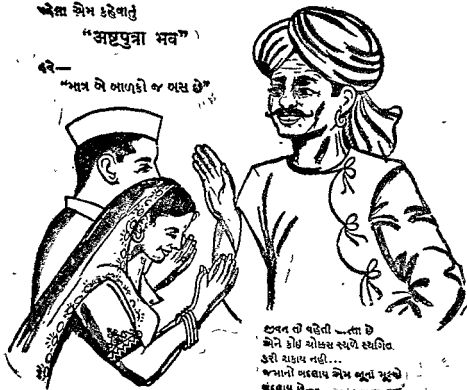 પહેલા એમ કહેવાતું
"अष्टपुत्रा भव"
હવે—
"માત્ર બે બાળકો જ બસ છે"
જીવન તો વહેતી છે
એને કોઇ ચોક્કસ સ્થળે સ્થગિત
કરી શકાય નહીં...
જમાનો બદલાય એમ જૂનાં મૂલ્યો